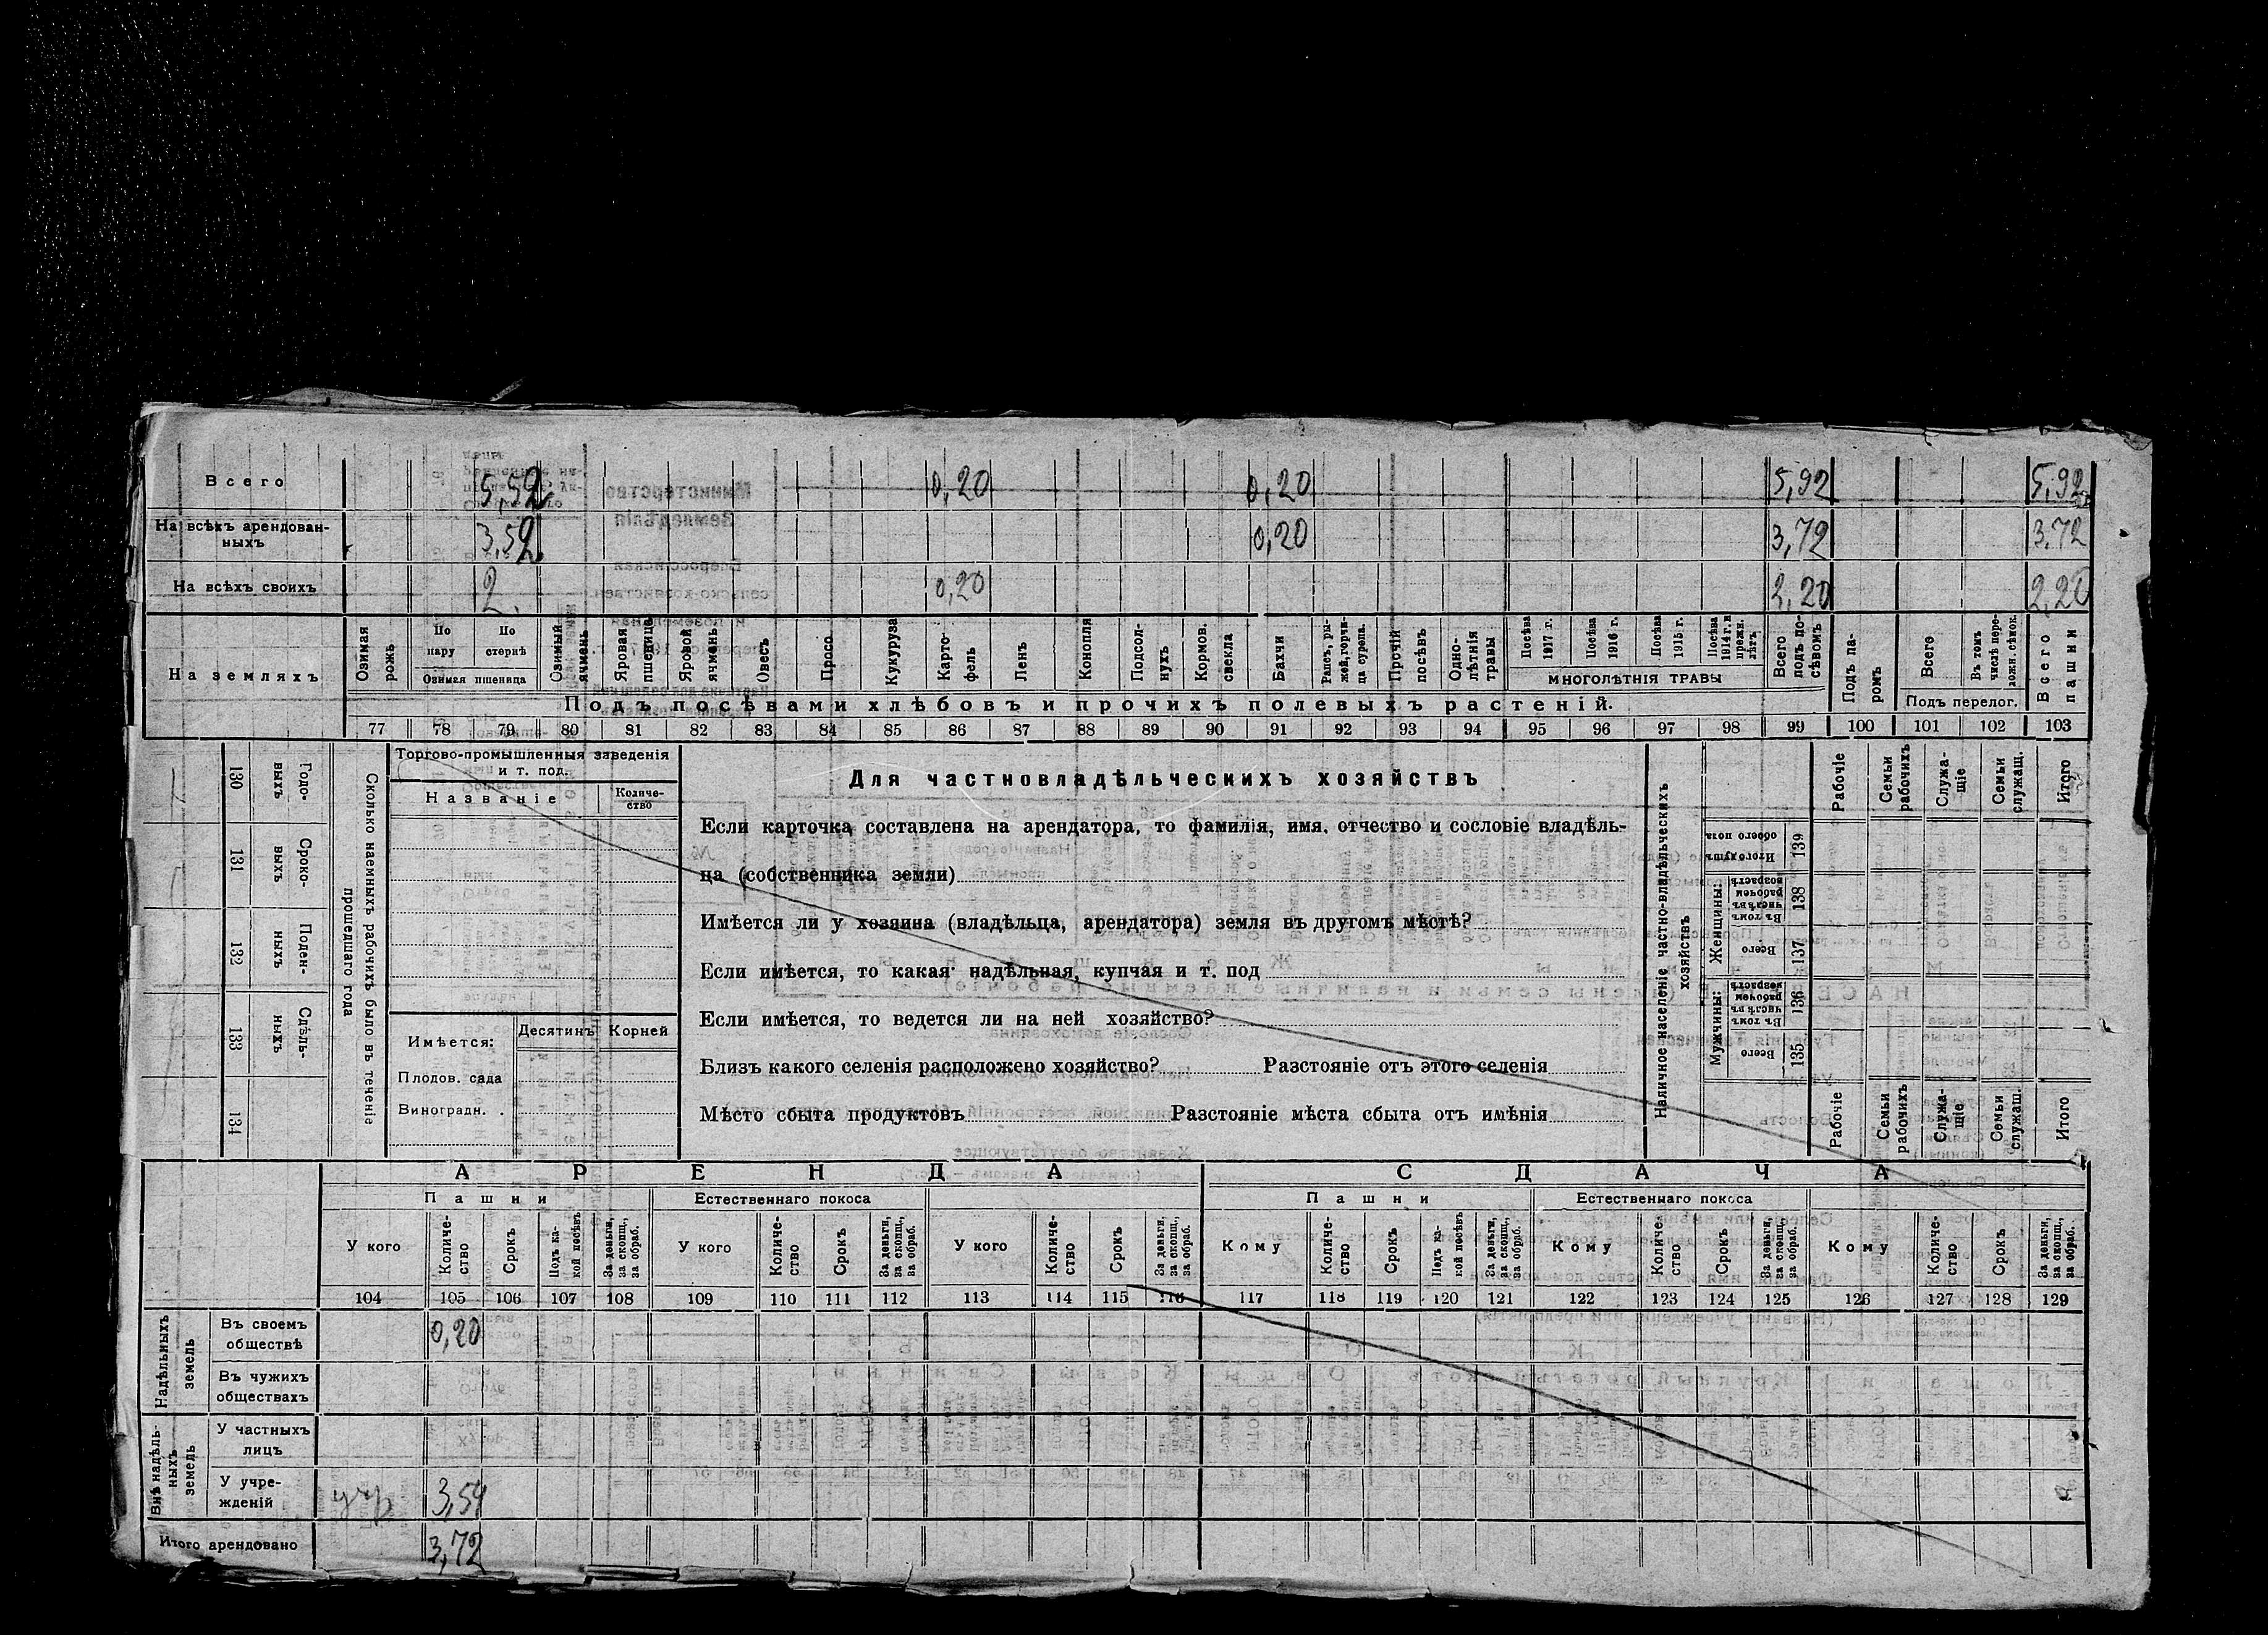 Всего 5,52 0,20 0,20 5,92 5,92
На всѣхъ арендован-
ныхъ 3,52 0,20 3,72 3,72
На всѣхъ своихъ 2. 0,20 2,20 2,20
На земляхъ
Озимая рожь
По пару
По стернѣ
Озимая пшеница
Озимый ячмень
Яровая пшеница
Яровой ячмень
Овесъ
Просо
Кукуруза
Карто-
фель
Ленъ
Конопля
Подсол-
нухъ
Кормов. свекла
Бахчи
Рапсъ, ры-
жей, горчи-
ца сурепа.
Прочій посѣвъ
Одно-
лѣтнія травы
Посѣва 1917 г.
Посѣва 1916 г.
Посѣва 1915 г.
Посѣва 1914 г. и прежн. лѣтъ
МНОГОЛѢТНІЯ ТРАВЫ
Всего подъ по-
сѣвомъ
Подъ па-
ромъ
Всего
Въ томъ числѣ пере-
ложн. сѣнок.
Подъ перелог.
Всего пашни
Подъ посѣвами хлѣбовъ и прочихъ полевыхъ растеній.
77 78 79 80 81 82 83 84 85 86 87 88 89 90 91 92 93 94 95 96 97 98 99 100 101 102 103
130 Годо-
выхъ
131 Сроко-
выхъ
132 Поден-
ныхъ
133 Сдѣль-
ныхъ
134
Сколько наемныхъ рабочихъ было въ теченіе
прошедшаго года
Торгово-промышленныя заведенія
и т. под.
Названіе
Количе-
ство
Имѣется:
Десятинъ
Корней
Плодов. сада
Виноградн. .
Для частновладѣльческихъ хозяйствъ
Если карточка составлена на арендатора, то фамилія, имя, отчество и сословіе владѣль-
ца (собственника земли)
Имѣется ли у хозяина (владѣльца, арендатора) земля въ другомъ мѣстѣ?
Если имѣется, то какая: надѣльная, купчая и т. под
Если имѣется, то ведется ли на ней хозяйство?
Близъ какого селенія расположено хозяйство? Разстояніе отъ этого селенія
Мѣсто сбыта продуктовъ Разстояніе мѣста сбыта отъ имѣнія
Наличное населеніе частно-владѣльческихъ
хозяйствъ
Рабочіе
Семьи рабочихъ
Служа-
щіе
Семьи служащ.
Итого
Итого душъ обоего пола 139
Женщины:
Въ томъ числѣ въ рабочемъ возрастѣ 138
Всего 137
Мужчины:
Въ томъ числѣ въ рабочемъ возрастѣ 136
Всего 135
Рабочіе
Семьи рабочихъ
Служа-
щіе
Семьи служащ.
Итого
АРЕНДА
СДАЧА
Пашни
Естественнаго покоса
Пашни
Естественнаго покоса
У кого
Количе-
ство
Срокъ
Подъ ка-
кой посѣвъ
За деньги, за скопщ., за обраб.
У кого
Количе-
ство
Срокъ
За деньги, за скопщ., за обраб.
У кого
Количе-
ство
Срокъ
За деньги, за скопщ., за обраб.
Кому
Количе-
ство
Срокъ
Подъ ка-
кой посѣвъ
За деньги, за скопщ., за обраб.
Кому
Количе-
ство
Срокъ
За деньги, за скопщ., за обраб.
Кому
Количе-
ство
Срокъ
За деньги, за скопщ., за обраб.
104 105 106 107 108 109 110 111 112 113 114 115 116 117 118 119 120 121 122 123 124 125 126 127 128 129
Надѣльныхъ земель
Въ своемъ
обществѣ 0,20
Въ чужихъ
обществахъ
Внѣ надѣль-
ныхъ земель
У частныхъ
лицъ
У учре-
жденій учр 3,54
Итого арендовано 3,72